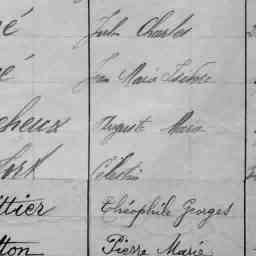 é Jules Charles
é Jean Marie
cheux Auguste Marie
fort Célestin
ttier Théophile Georges
tton Pierre Marie